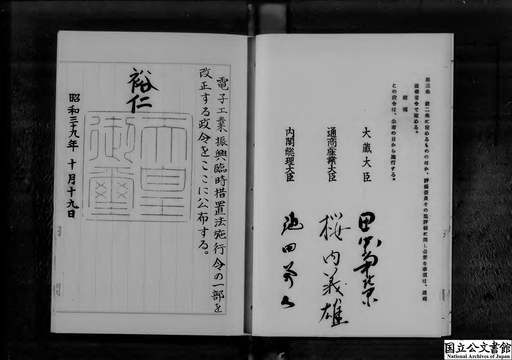 第三条 前二条に定めるもののほか、評価委員その他評価に関し必要な事項は、通商
産業省令で定める。
附則
この政令は、公布の日から施行する。
大蔵大臣 田中角榮
通商産業大臣 桜内義雄
内閣総理大臣 池田勇人
電子工業振興臨時措置法施行令の一部を
改正する政令をここに公布する。
裕仁
天皇
御璽
昭和三十九年十月十九日
国立公文書館
National Archives of Japan